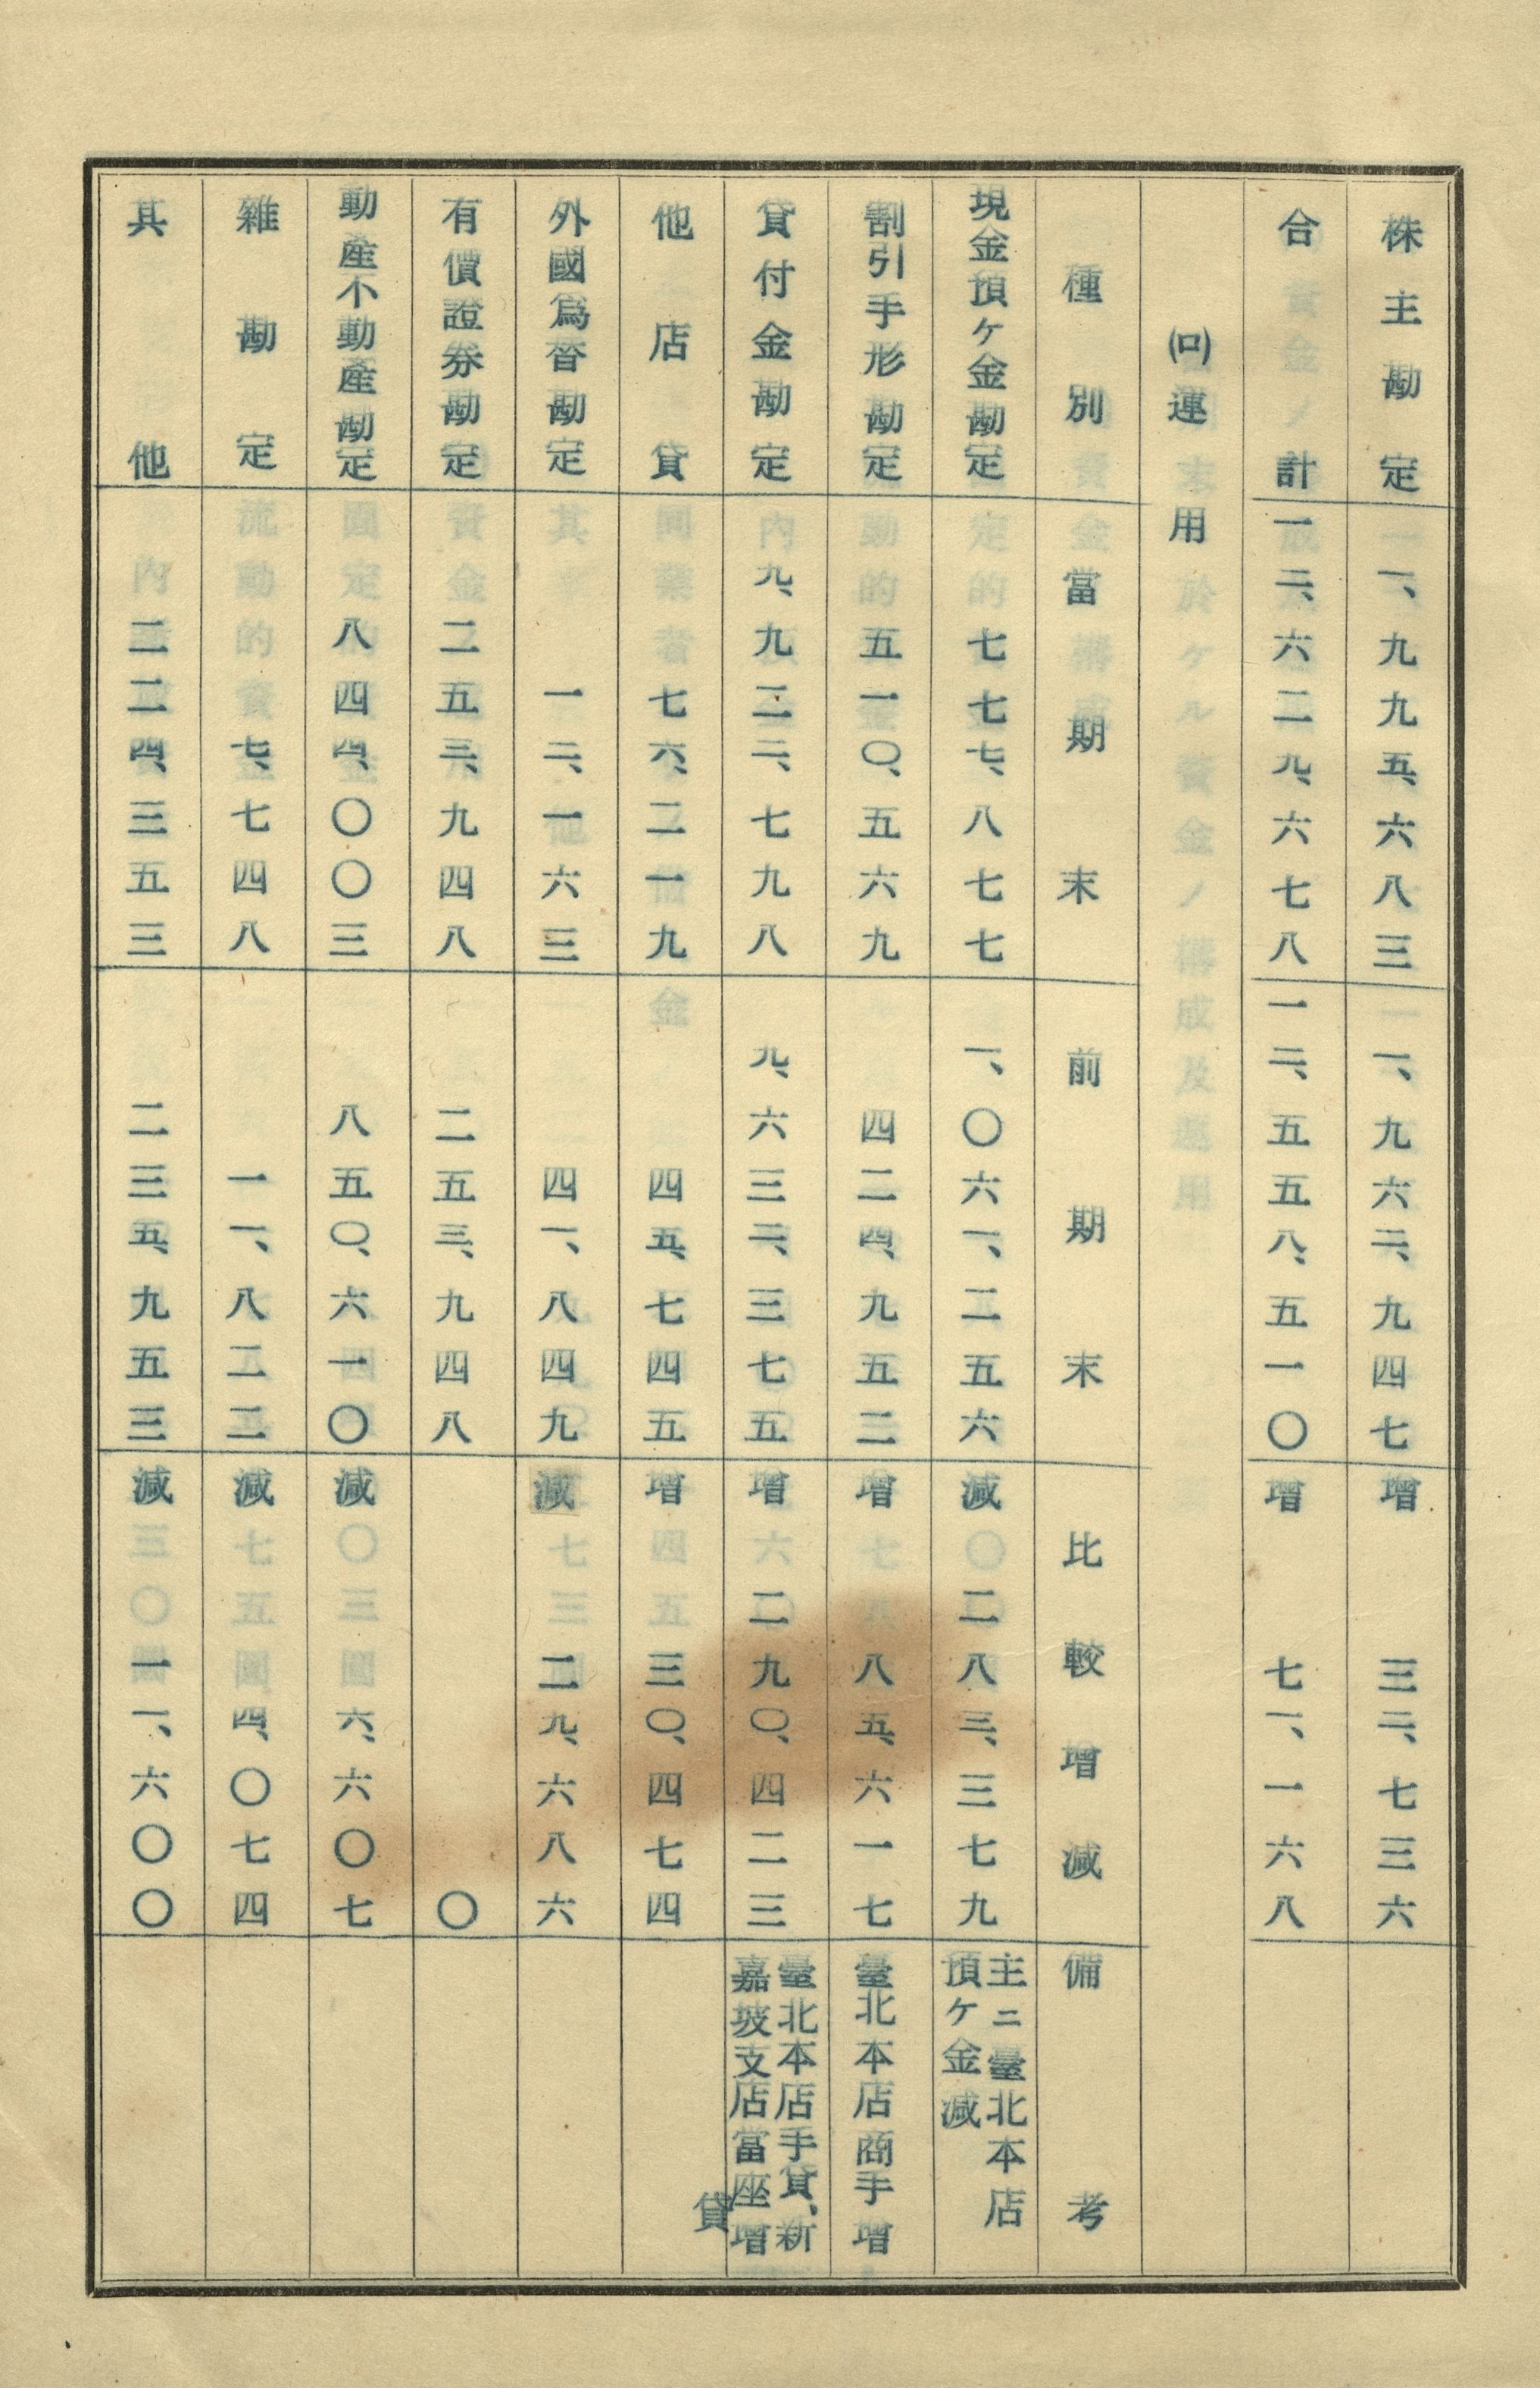 株主勘定 一、九九五、六八三 一、九六二、九四七 增 三二、七三六
合計 一二、六二九、六七八 一二、五五八、五一〇 增 七一、一六八
(ロ)運用
種別 當期末 前期末 比較增減 備考
現金預ケ金勘定 七七七、八七七 一、〇六一、二五六 減 二八三、三七九 主ニ臺北本店
預ケ金減
割引手形勘定 五一〇、五六九 四二四、九五二 增 八五、六一七 臺北本店商手增
貸付金勘定 九、九二二、七九八 九、六三二、三七五 增 二九〇、四二三 臺北本店手貸、新
嘉坡支店當座貸增
他店貸 七六、二一九 四五、七四五 增 三〇、四七四
外國爲替勘定 一二、一六三 四一、八四九 減 二九、六八六
有價證券勘定 二五三、九四八 二五三、九四八 〇
動產不動產勘定 八四四、〇〇三 八五〇、六一〇 減 六、六〇七
雜勘定 七、七四八 一一、八二二 減 四、〇七四
其他 二二四、三五三 二三五、九五三 減 一一、六〇〇